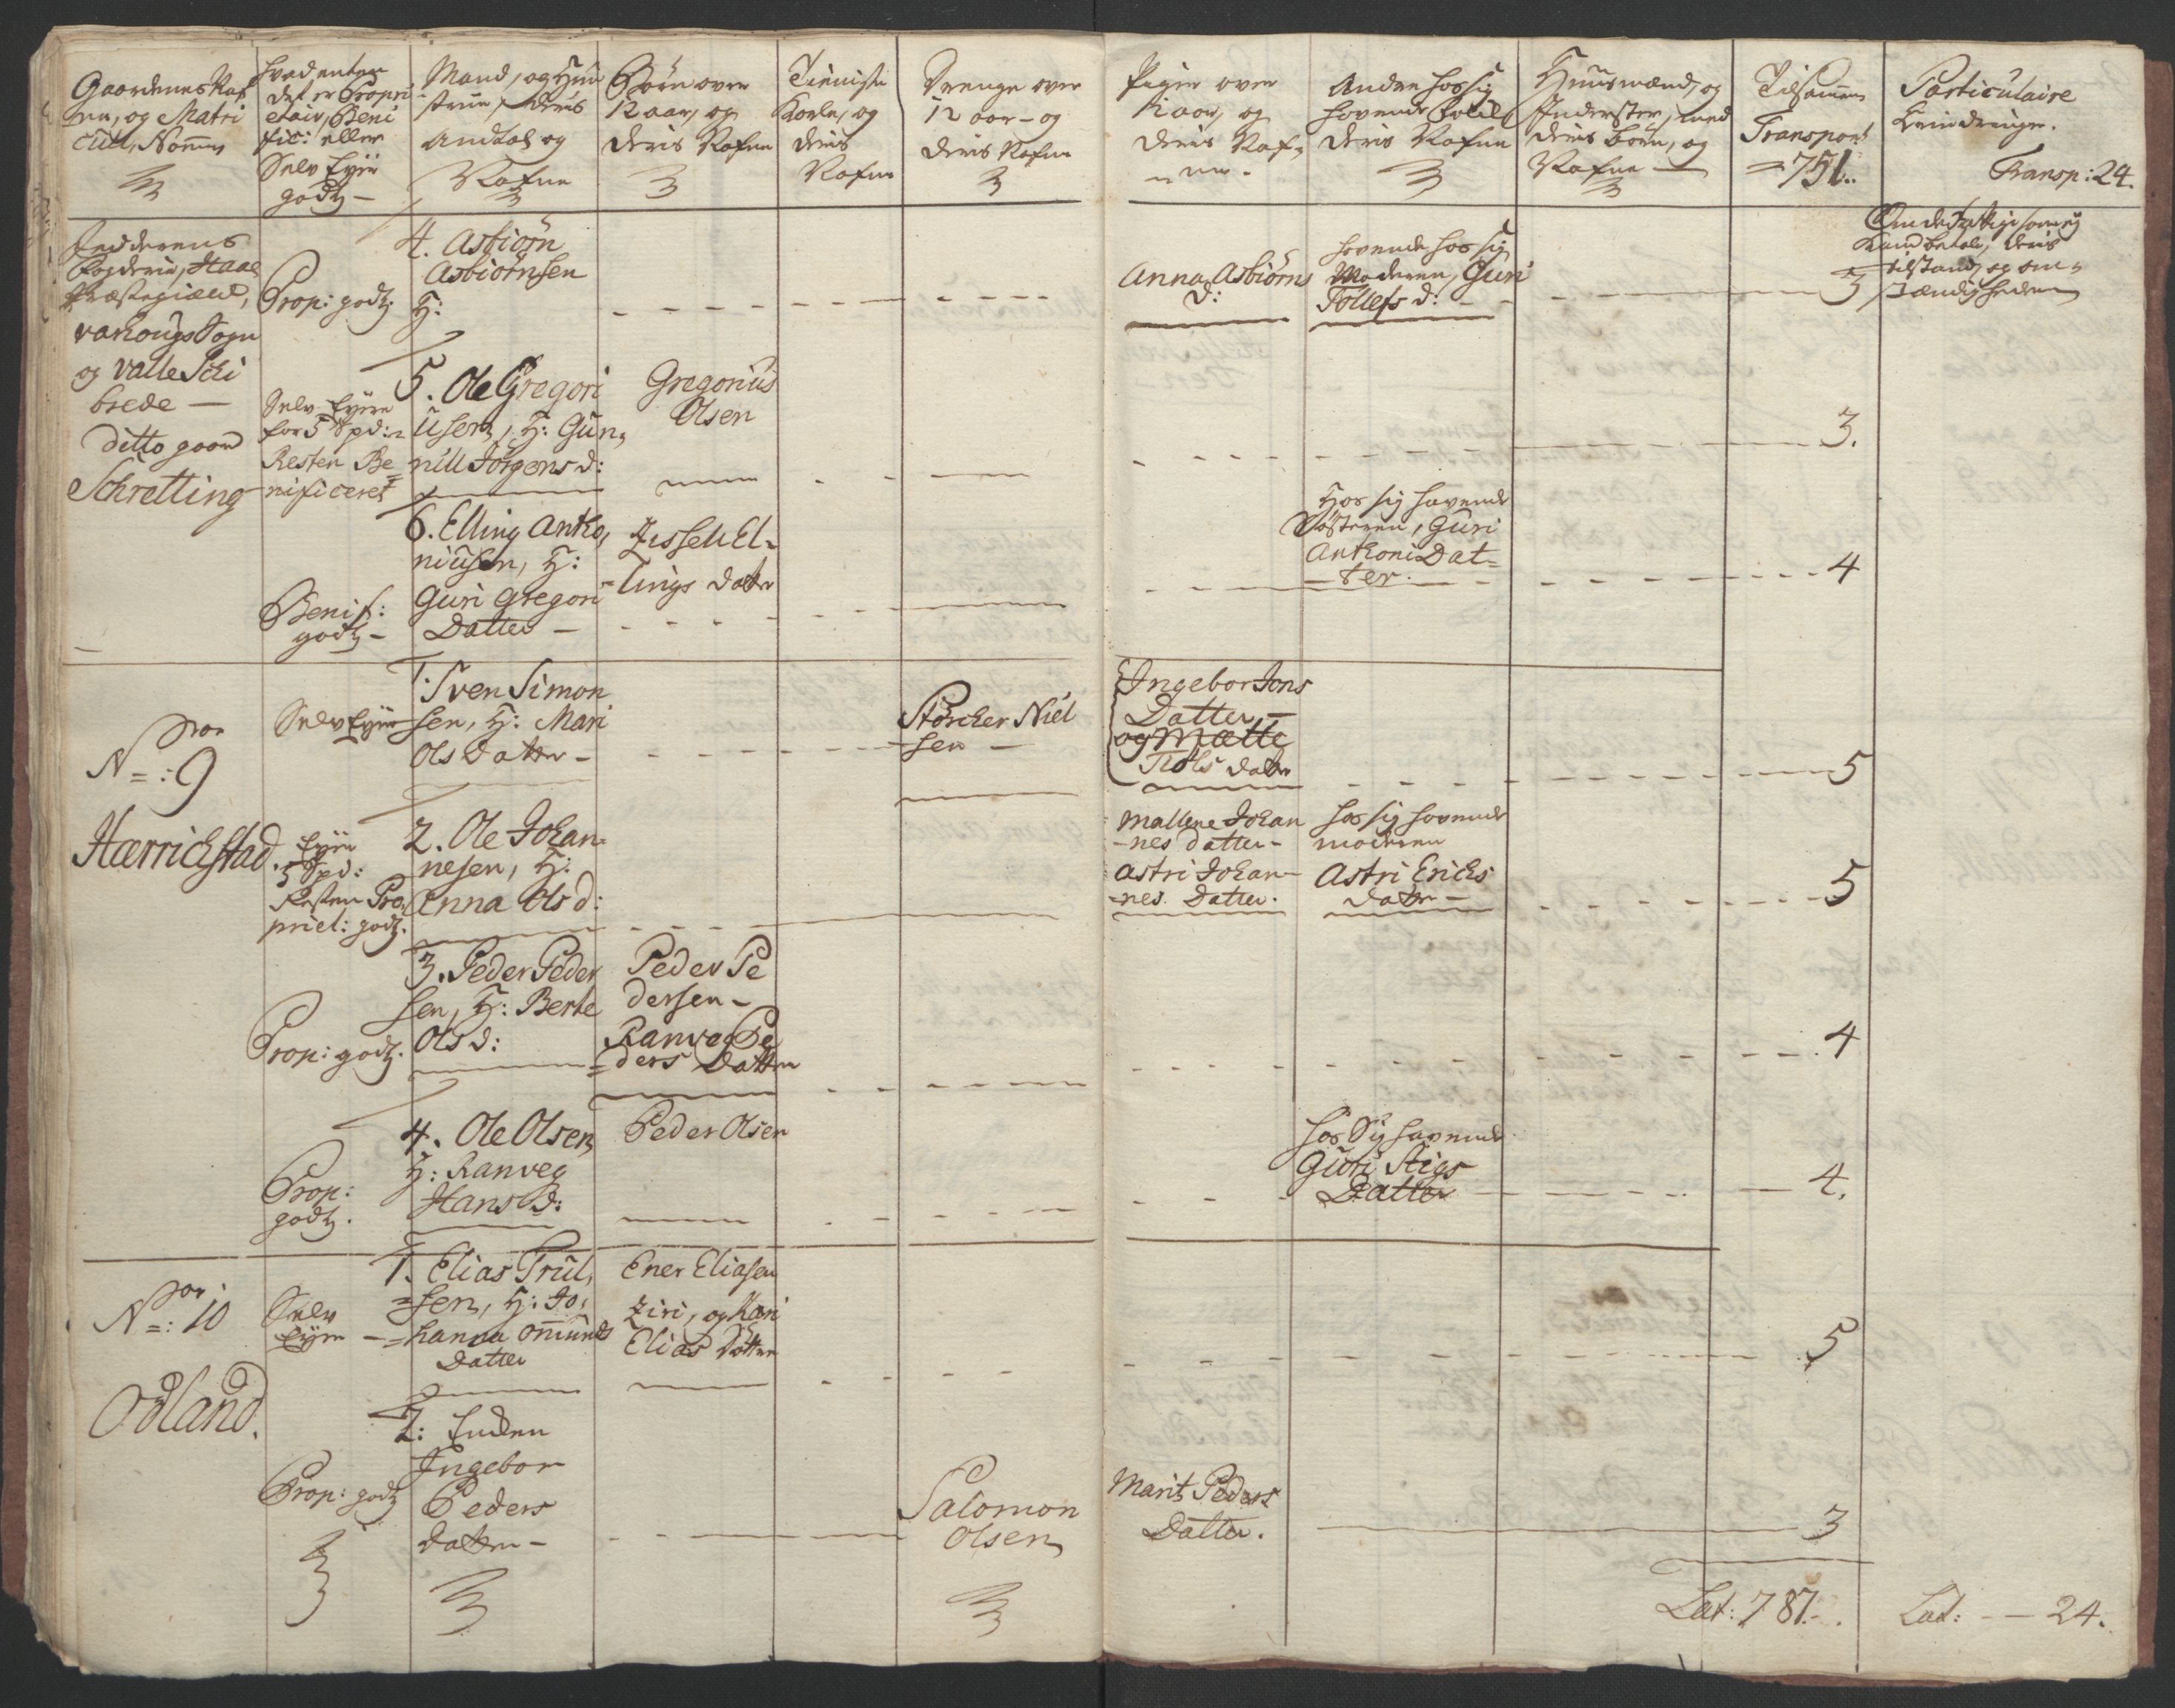 Gaardenes Naf
ne, og Matri
cul, Nommer
hvad enten
det er Propri
etair, Beni
fic: eller
Selv Eyer
godtz -
Mand, og Hus
true, deris
Andtal og
Nafne
Børn over
12 aar, og
deris Nafne
Tieniste
Karle, og
deris
Nafne
Drenge over
12 aar - og
deris Nafne
Piger over
12 aar, og
deris Naf-
ne -
Anden hos sig
havende Folck
deris Nafne
Huusmænd, og
Inderster, med
deris børn, og
Nafne -
Tilsammen
Transport
= 751.
Particulaire
Transp: 24.
Jedderens
Fogderie, Haae
Præstegield,
Varhougs Sogn
og Valle Schi
brede -
ditto gaard
Schretting
Prop: godtz.
4. Asbiørn
Asbiørnsen
H:
Anna Asbiørns
d:
havende hos sig
Moderen, Guri
Tollefs d:
3
tilstand, og om-
stændigheder
Selv Eyere
for 5 Spd:
Resten Be
nificeret
5. Ole Gregori
usen, H: Gun,
nill Jørgens d:
Gregorius
Olsen
3.
Benif:
godtz -
6. Elling Antho,
niusen, H:
Guri Gregori
Datter -
Zissell El-
lings datter
Hos sig havende
Søsteren, Guri
Anthoni Dat-
ter.
4
No: 9
Hærrichstad.
Selv Eyer
1. Sven Simon
sen, H: Mari
Ols Datter -
Størcker Niel
sen -
Ingebor Jons
Datter -
og Mætte
Tiøls datter
5
Eyer
5 Spd:
Resten Pro,
priet: godtz.
2. Ole Johan-
nesen, H:
Anna Ols d:
Mallene Johan
-nes datter -
Astri Johan-
-nes Datter.
hos sig havende
moderen
Astri Erichs
datter -
5
Prop: godtz.
3. Peder Peder
sen, H: Berte
Ols d:
Peder Pe
dersen -
Ranveg Pe
=ders Datter
4
Prop:
godtz.
4. Ole Olsen
H: Ranveg
Hans d:
Peder Olsen
hos Sig havende
Guri Stigs
Datter
4.
No: 10
Odland.
Selv
Eyer -
1. Elias Trul,
=sen, H: Jo,
=hanna Omunds
Datter
Ener Eliasen
Ziri, og Kari
Elias Døttre
5
Prop: godtz
2: Enken
Ingebor
Peders
datter -
Salomon
Olsen
Marit Peders
Datter.
3
Lat: 787.
Lat: - - 24.